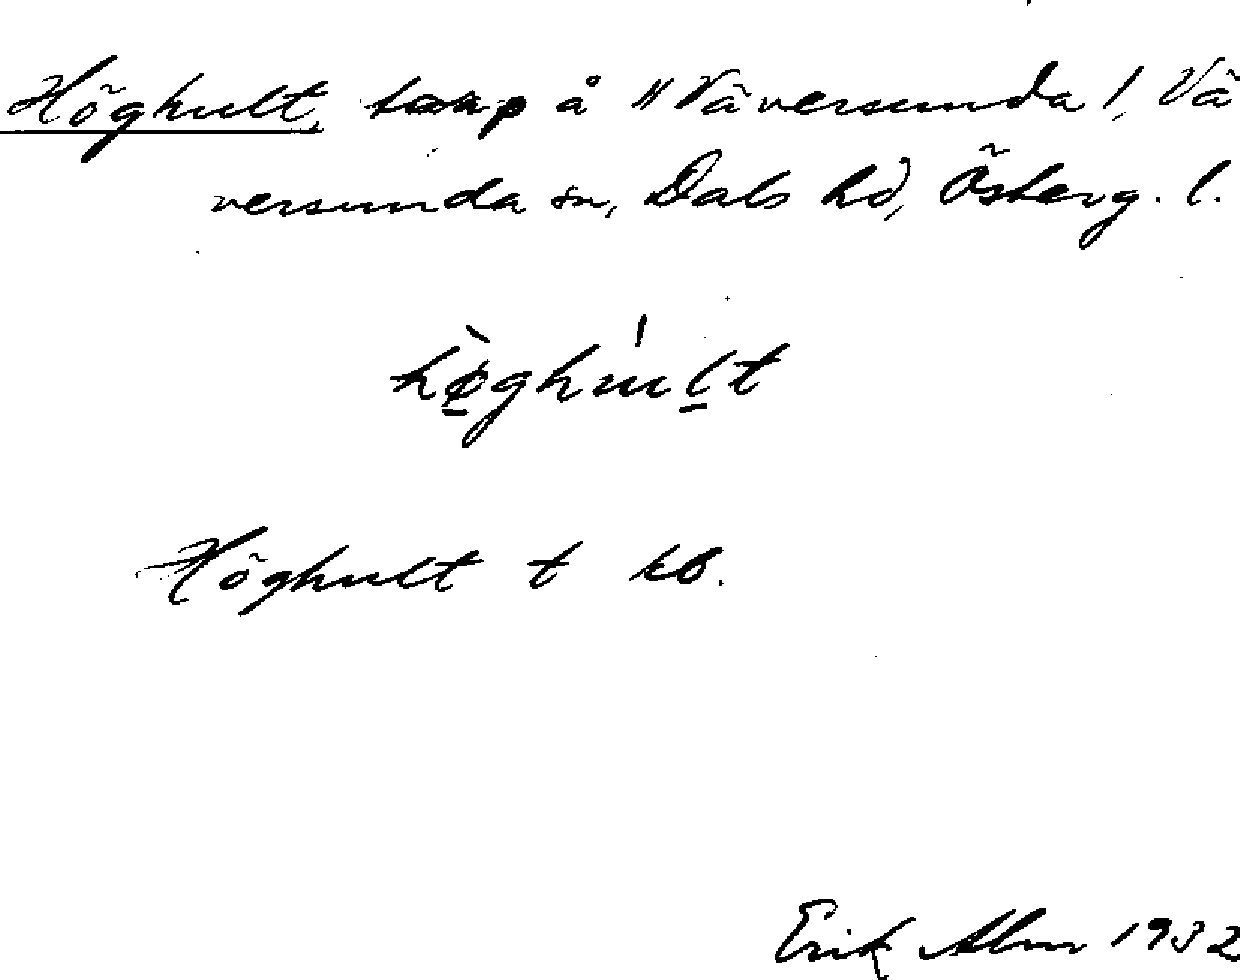 Höghult, torp å "Väversunda 1, Vä
versunda sn, Dals hd, Österg. l.
hø̀ghúlt
Höghult t kb.
Erik Alm 1932